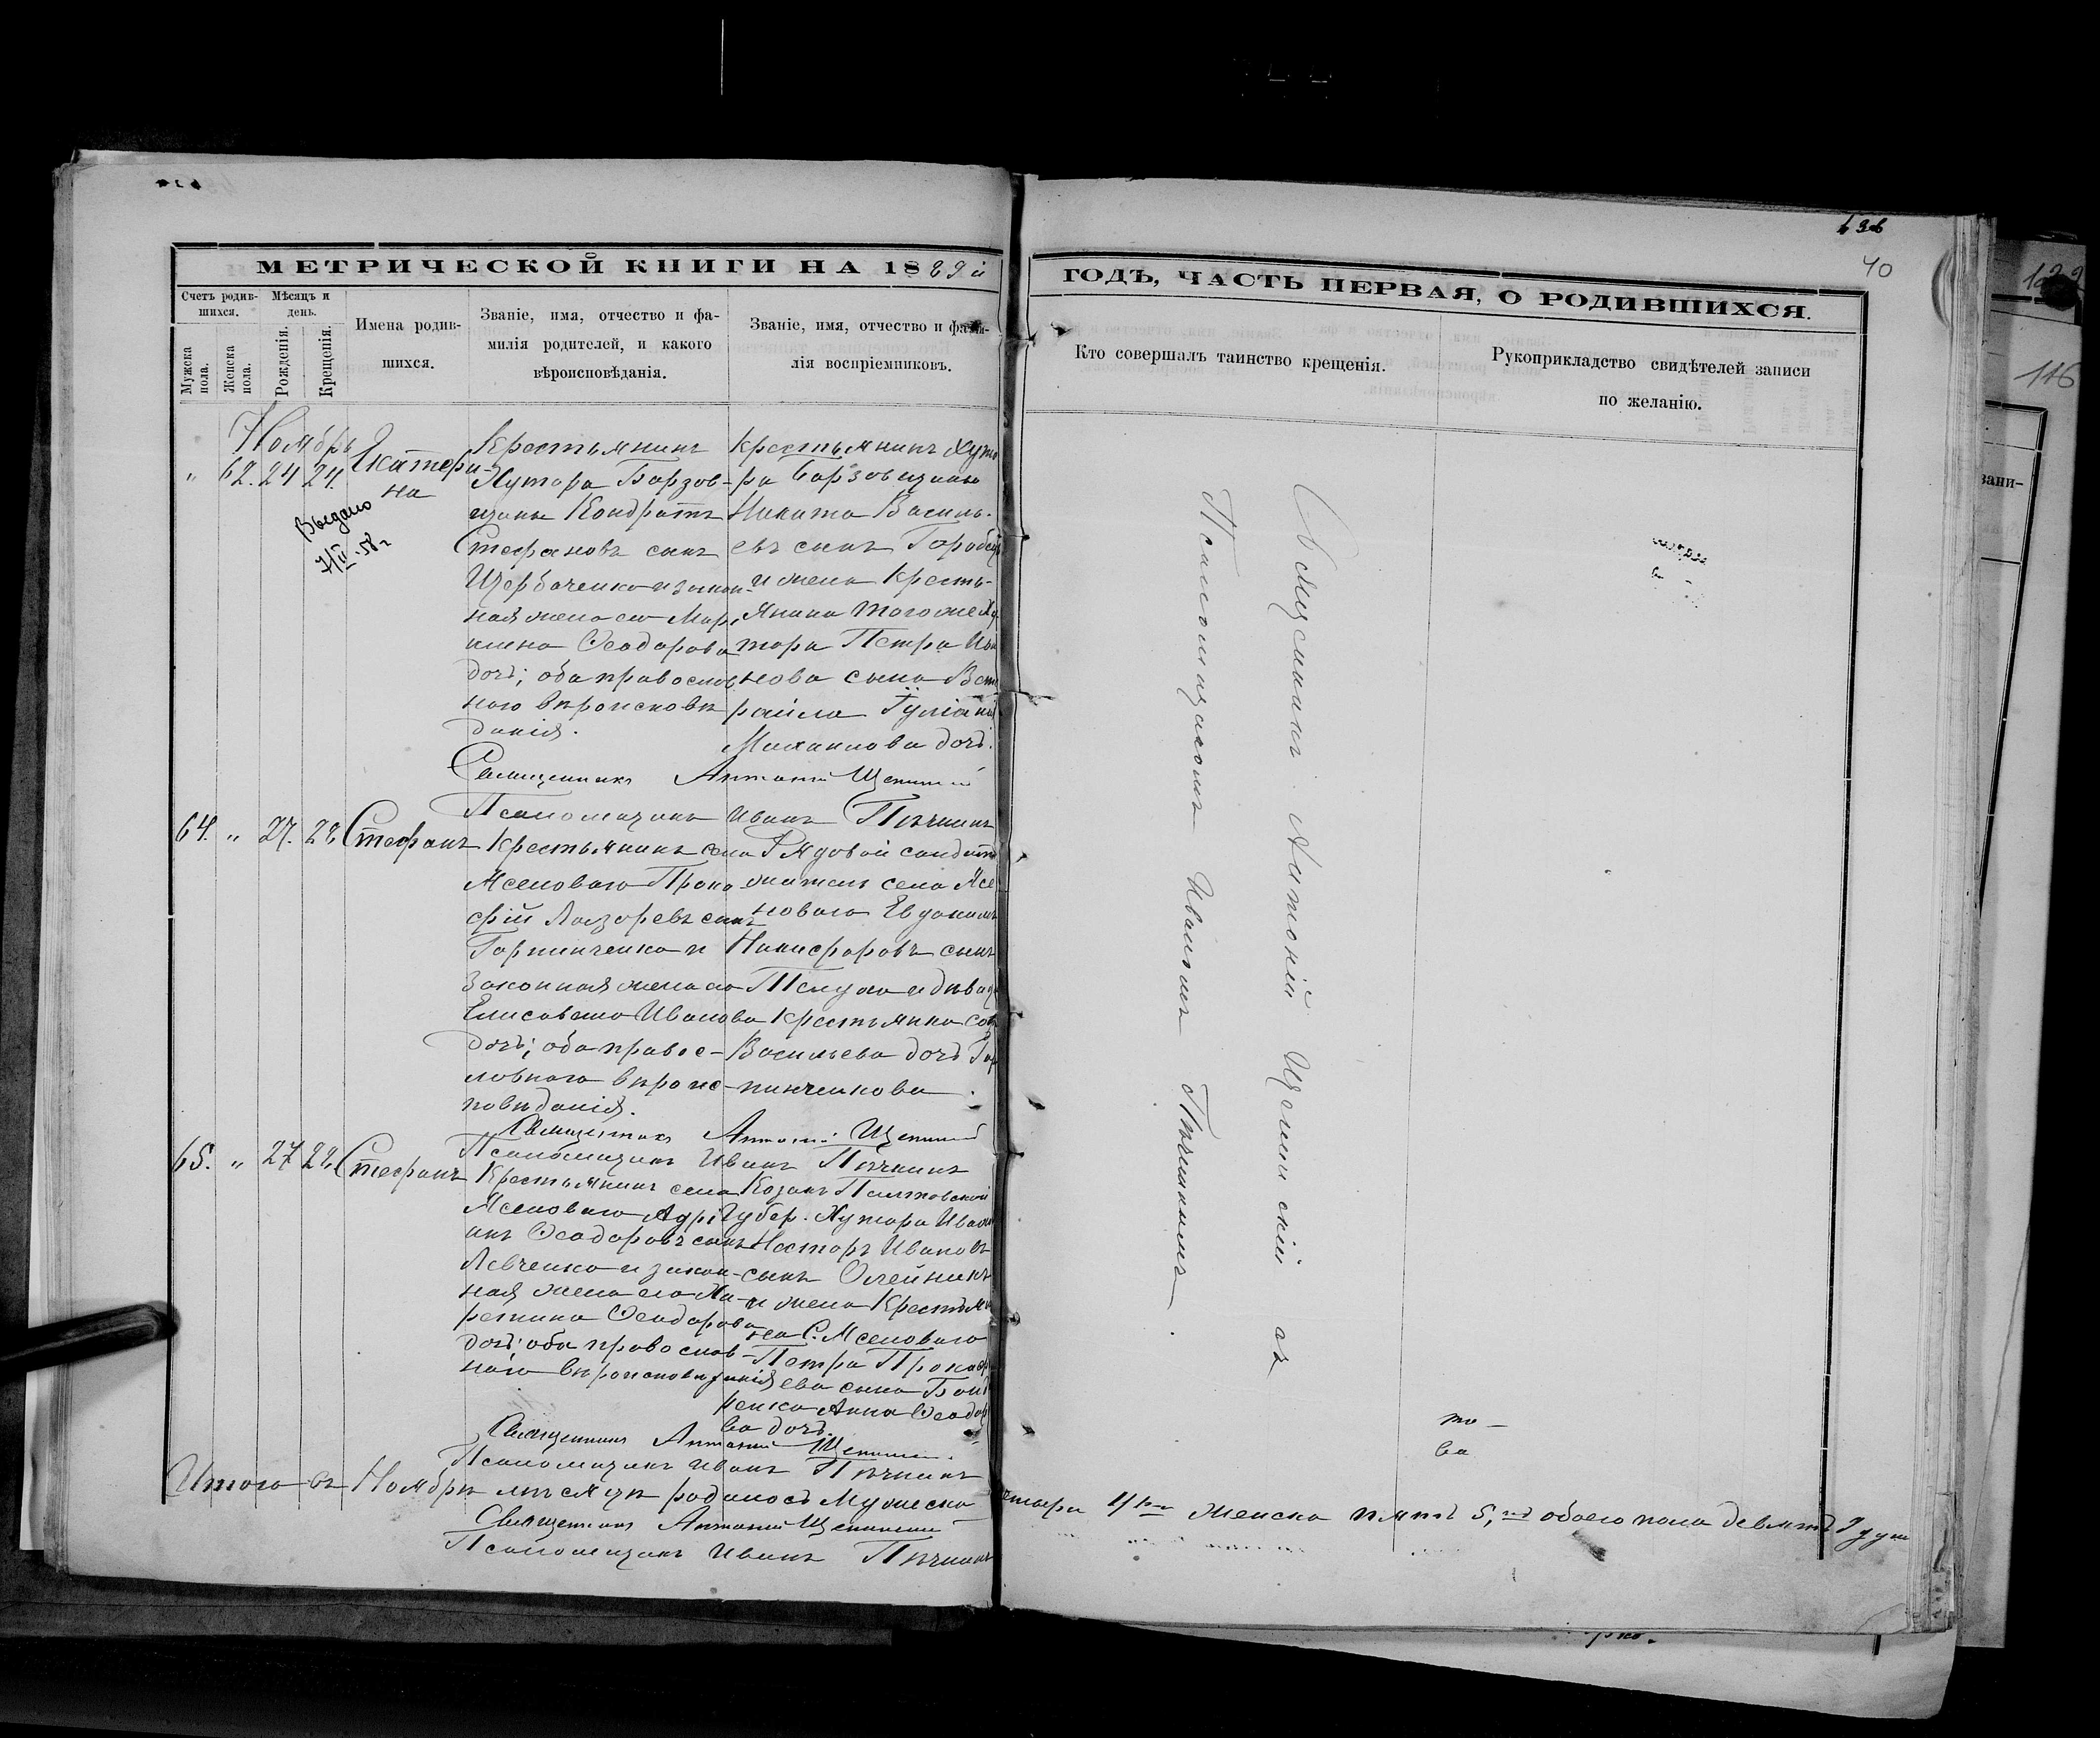 МЕТРИЧЕСКОЙ КНИГИ НА 1889й
ГОДЪ, ЧАСТЬ ПЕРВАЯ, О РОДИВШИХСЯ.
40
Счетъ родив-
шихся.
Мужска
пола.
Женска
пола.
Мѣсяцъ и
день.
Рожденія.
Крещенія.
Имена родив-
шихся.
Званіе, имя, отчество и фа-
милія родителей, и какого
вѣроисповѣданія.
Званіе, имя, отчество и фами-
лія воспріемниковъ.
Кто совершалъ таинство крещенія.
Рукоприкладство свидѣтелей записи
по желанію.
Ноябрь
" 62. 24 24. Екатери-
на
Выдано
7/II-58г
Крестьянинъ
Хутора Борзов-
щины Кондратъ
Стефановъ сынъ
Щербаченко и закон-
ная жена его Мар.
Феодорова
дочь; оба православ
наго вѣроисповѣ
данія.
Крестьянинъ Хуто
ра Борзовщины
Никита Василь-
евъ сынъ Горобецъ
и жена Кресть-
янина того же Ху
тора Петра Ива
нова сына
Іуліанія
Михаилова дочь.
Священникъ Антоній
Псаломщикъ Иванъ Пѣчкинъ
64. " 27. 28 Стефанъ
Крестьянинъ села
Ясеноваго Проко
фій Лазоревъ сынъ
Горпинченко и
Законная жена его
Елисавета Иванова
дочь; оба правос-
лавнаго вѣроис-
повѣданія.
Рядовой солдатъ
житель села Ясе
новаго Евдокимъ
Никифоровъ сынъ
и дѣвица
крестьянка
Васильева дочь Гор
пинченкова
Священникъ Антоній
Псаломщикъ Иванъ Пѣчкинъ
65. " 27 28 Стефанъ
Крестьянинъ села
Ясеноваго Адрі
анъ Феодоровъ сынъ
Левченко и закон-
ная жена его Ха-
ритина Феодорова
дочь; оба православ-
наго вѣроисповѣданія
Козакъ Полтовской
Губер. Хутора
Несторъ Ивановъ
сынъ Олейникъ
и жена Крестьяни
на С. Ясеноваго
Петра Прокоф
ева сына
Анна Феодоро
ва дочь.
Священникъ Антоній
Псаломщикъ Иванъ Пѣчкинъ
Итого въ Ноябрѣ мѣсяцѣ родилось Мужеска
четыри 4ре Женска пять 5, обоего пола девять 9 душ
Священникъ Антоній
Псаломщикъ Иванъ Пѣчкинъ
Священникъ Антоній
съ
Псаломщикомъ Иваномъ Пѣчкинымъ
то-
ва
116